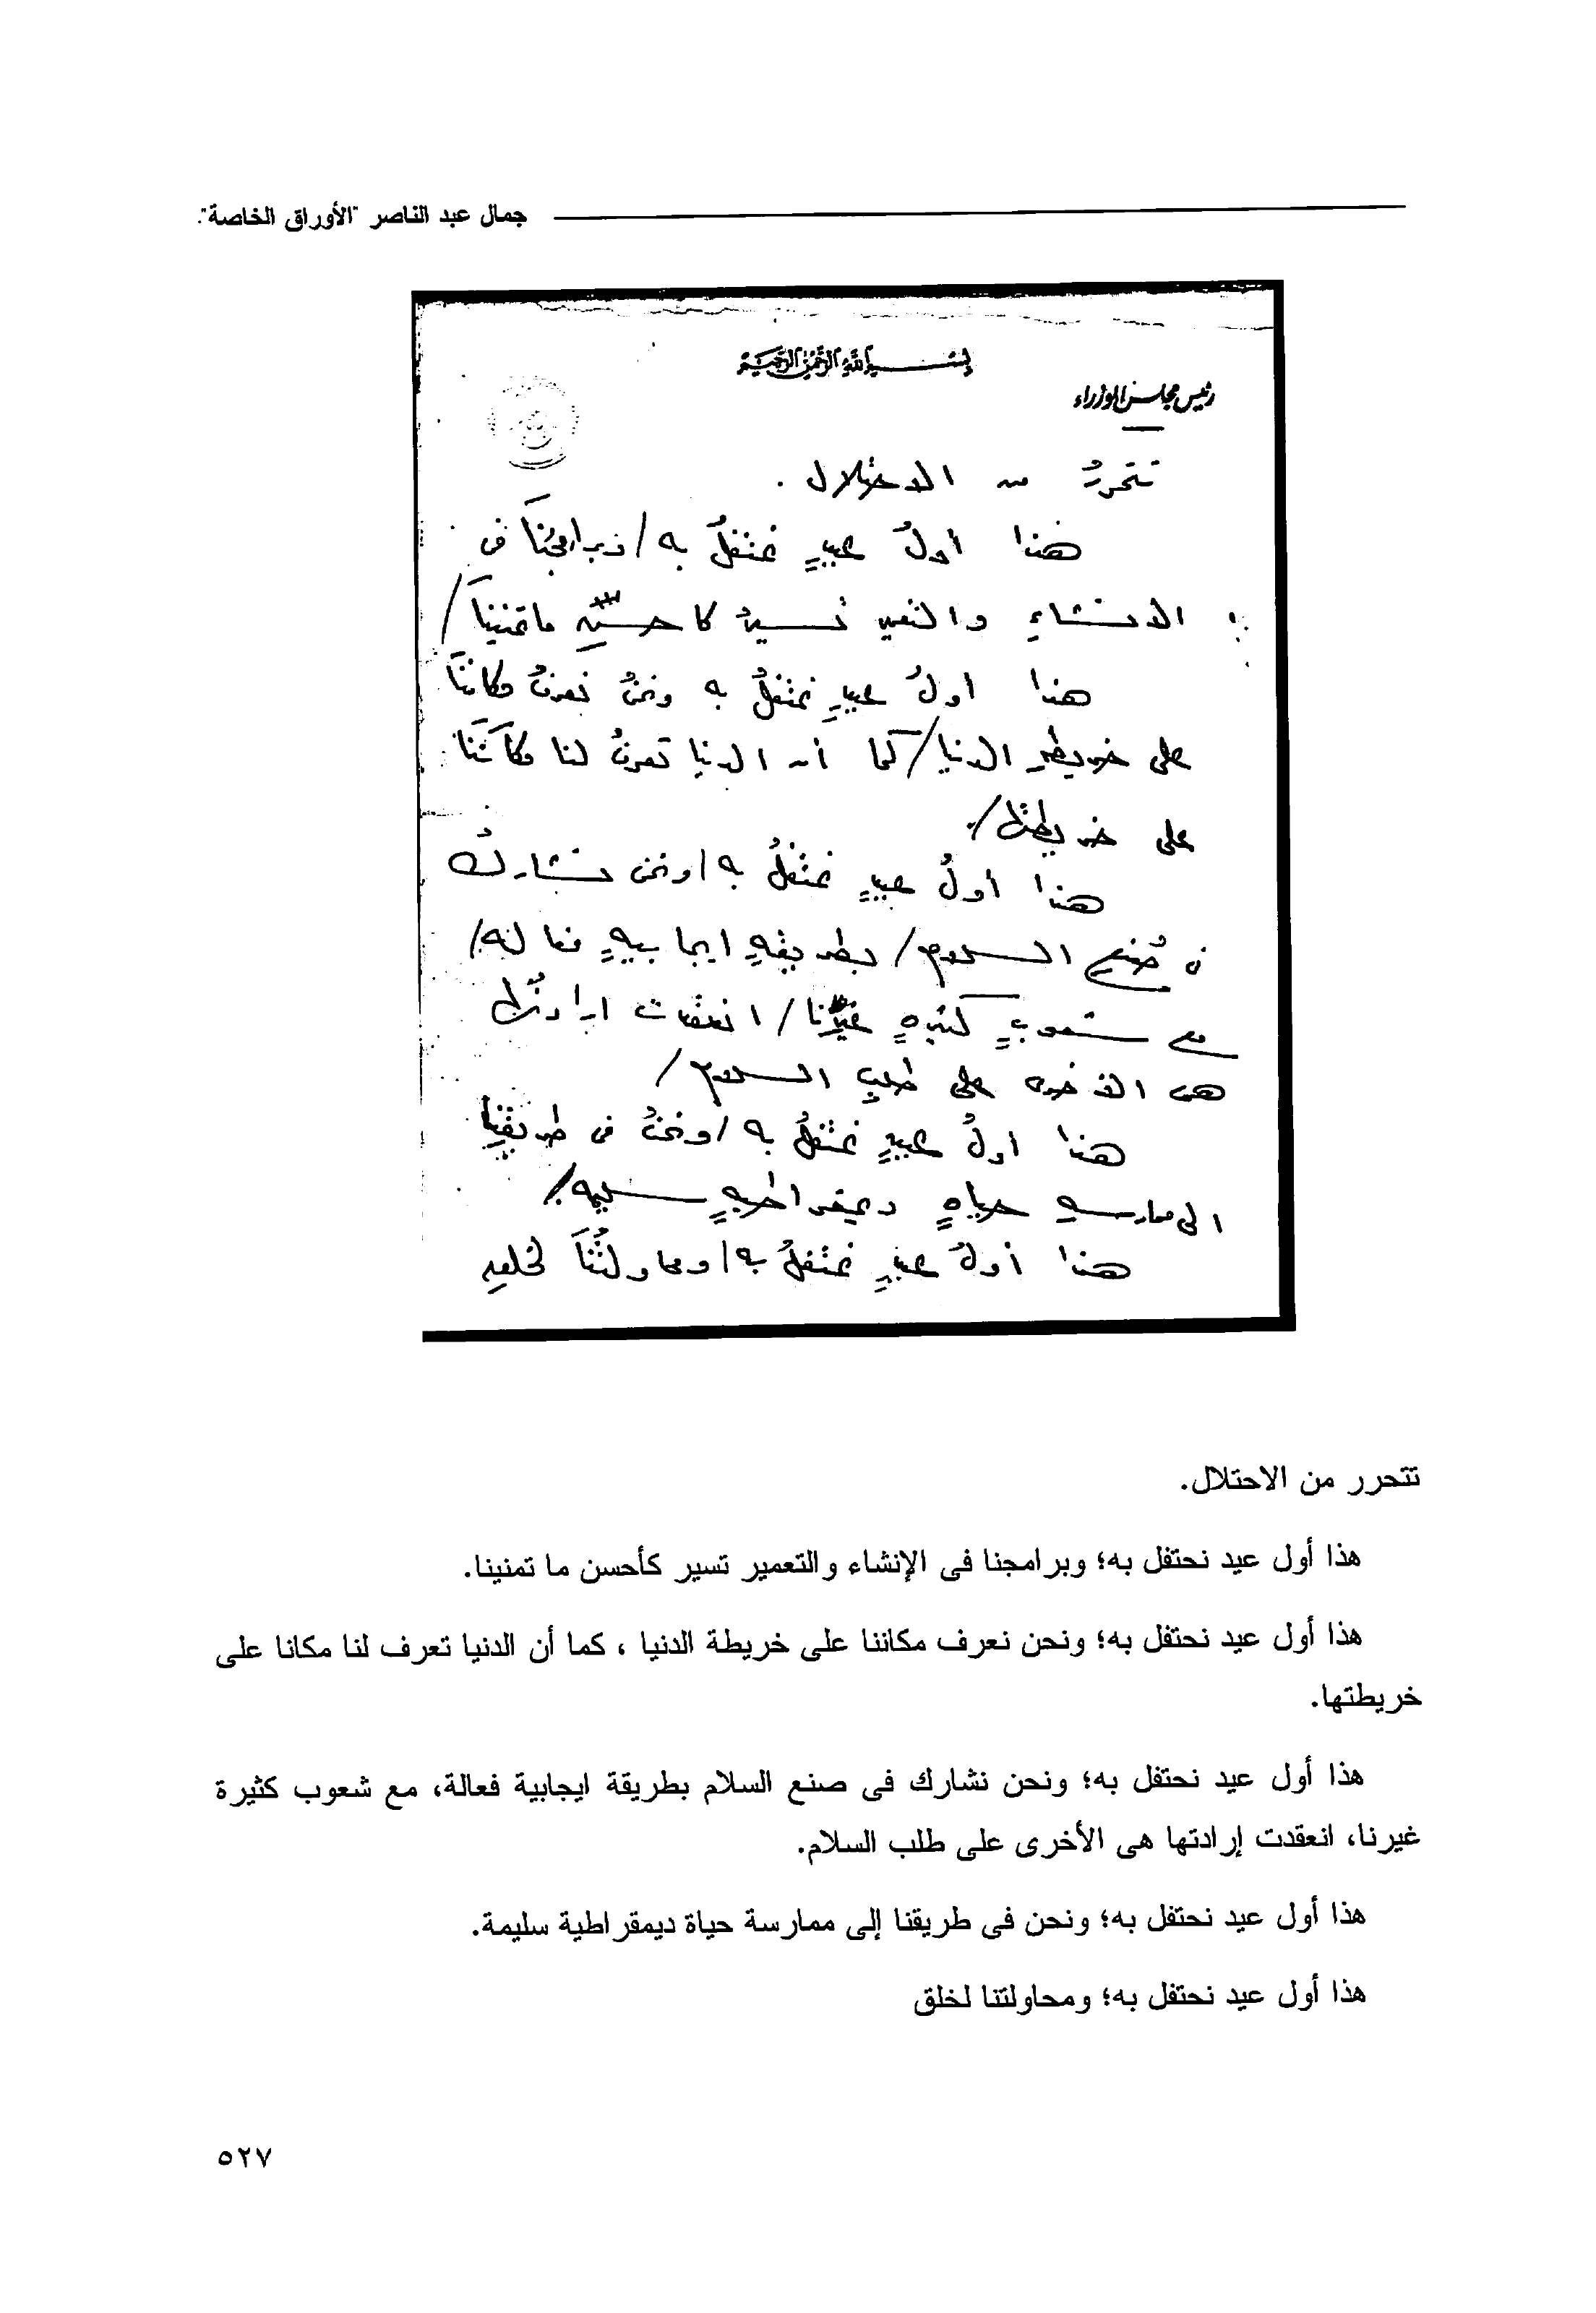 جمال عبد الناصر "الأوراق الخاصة".
بسم الله الرحمن الرحيم
رئيس مجلس الوزراء
تتحررُ من الاحتلال .
هذا أولُ عيدٍ نحتفلُ به / وبرامجُنا فى
الانشاءِ والتعمير تسيرُ كاحسنِ ما تمنينا /
هذا أولُ عيدٍ نحتفلُ به ونحنُ نعرفُ مكاننا
على خريطةِ الدنيا / كما أن الدنيا تعرفُ لنا مكاناً
على خريطتها /.
هذا أولُ عيدٍ نحتفلُ به / ونحن نشاركُ
فى صُنعِ السلام / بطريقةٍ ايجابيةٍ فعاله /
مع شعوبٍ كثيرهٍ غيرِنا / انعقدت ارادتُها
هى الاخرى على طلبِ السلام /
هذا اولُ عيدٍ نحتفلُ به / ونحنُ فى طريقِنا
الى ممارسةِ حياهٍ ديمقراطيهٍ سليمه /.
هذا أولُ عيدٍ نحتفلُ به / ومحاولتُنا لخلقِ
تتحرر من الاحتلال.
هذا أول عيد نحتفل به؛ وبرامجنا فى الإنشاء والتعمير تسير كأحسن ما تمنينا.
هذا أول عيد نحتفل به؛ ونحن نعرف مكاننا على خريطة الدنيا ، كما أن الدنيا تعرف لنا مكانا على
خريطتها.
هذا أول عيد نحتفل به؛ ونحن نشارك فى صنع السلام بطريقة ايجابية فعالة، مع شعوب كثيرة
غيرنا، انعقدت إرادتها هى الأخرى على طلب السلام.
هذا أول عيد نحتفل به؛ ونحن فى طريقنا إلى ممارسة حياة ديمقراطية سليمة.
هذا أول عيد نحتفل به؛ ومحاولتنا لخلق
٥٢٧